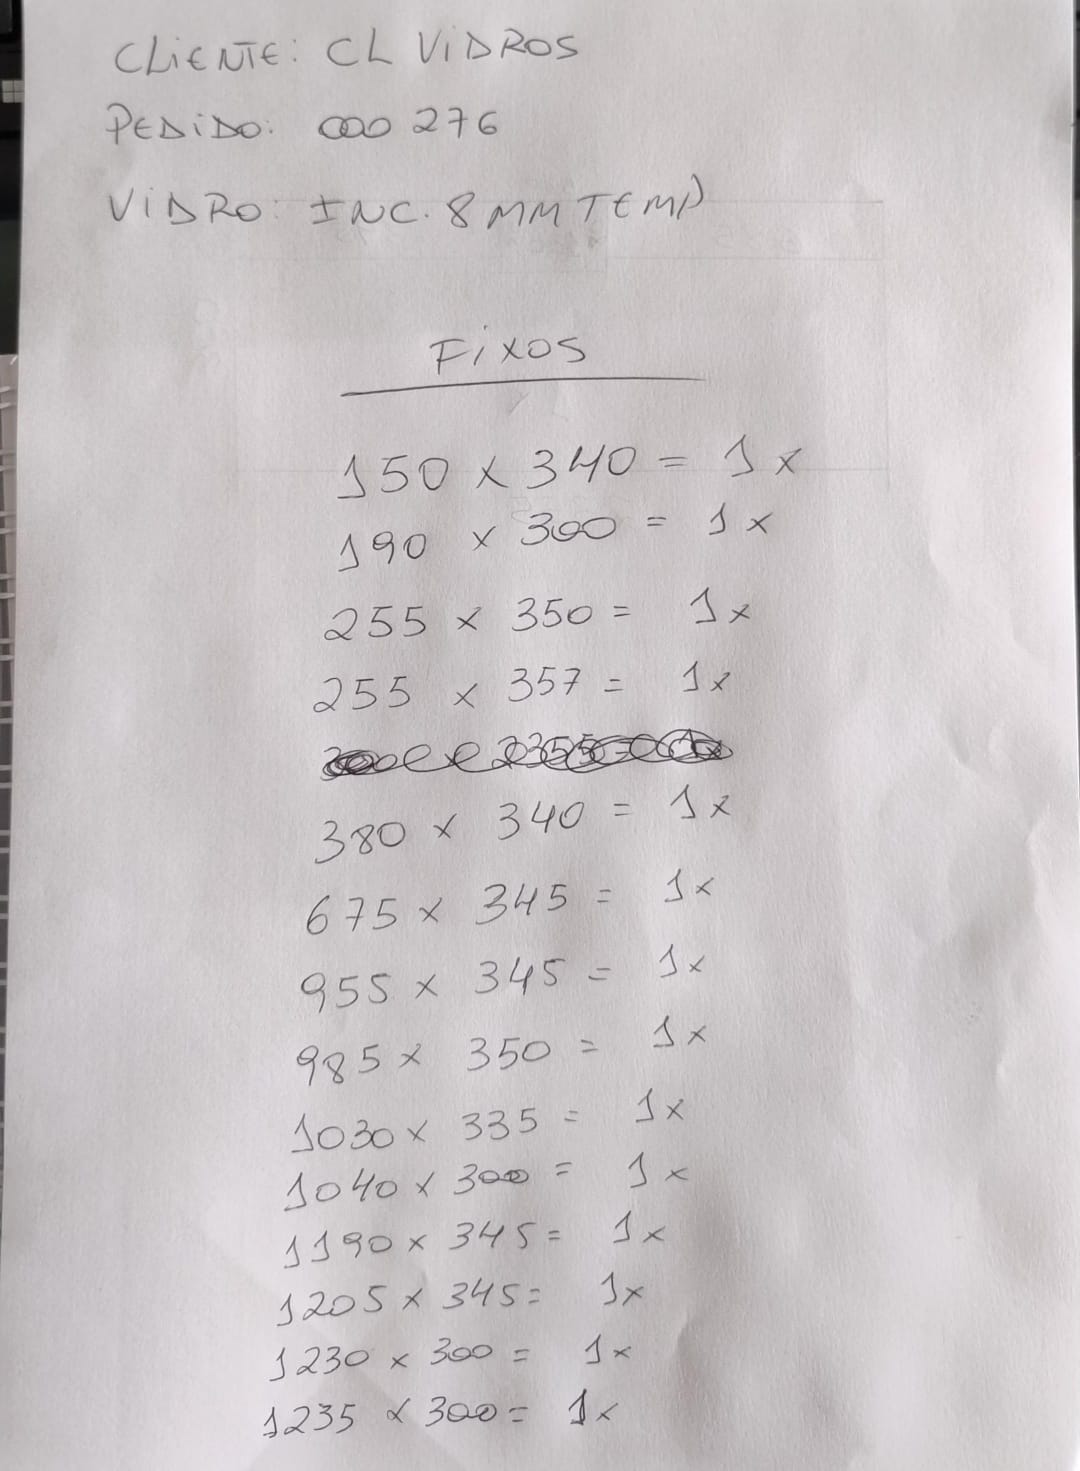 CLIENTE: CL VIDROS
PEDIDO: 000 276
VIDRO: INC. 8 MM TEMP
FIXOS
150 x 340 = 1x
190 x 300 = 1x
255 x 350 = 1x
255 x 357 = 1x
380 x 340 = 1x
675 x 345 = 1x
955 x 345 = 1x
985 x 350 = 1x
1030 x 335 = 1x
1040 x 300 = 1x
1190 x 345 = 1x
1205 x 345 = 1x
1230 x 300 = 1x
1235 x 300 = 1x